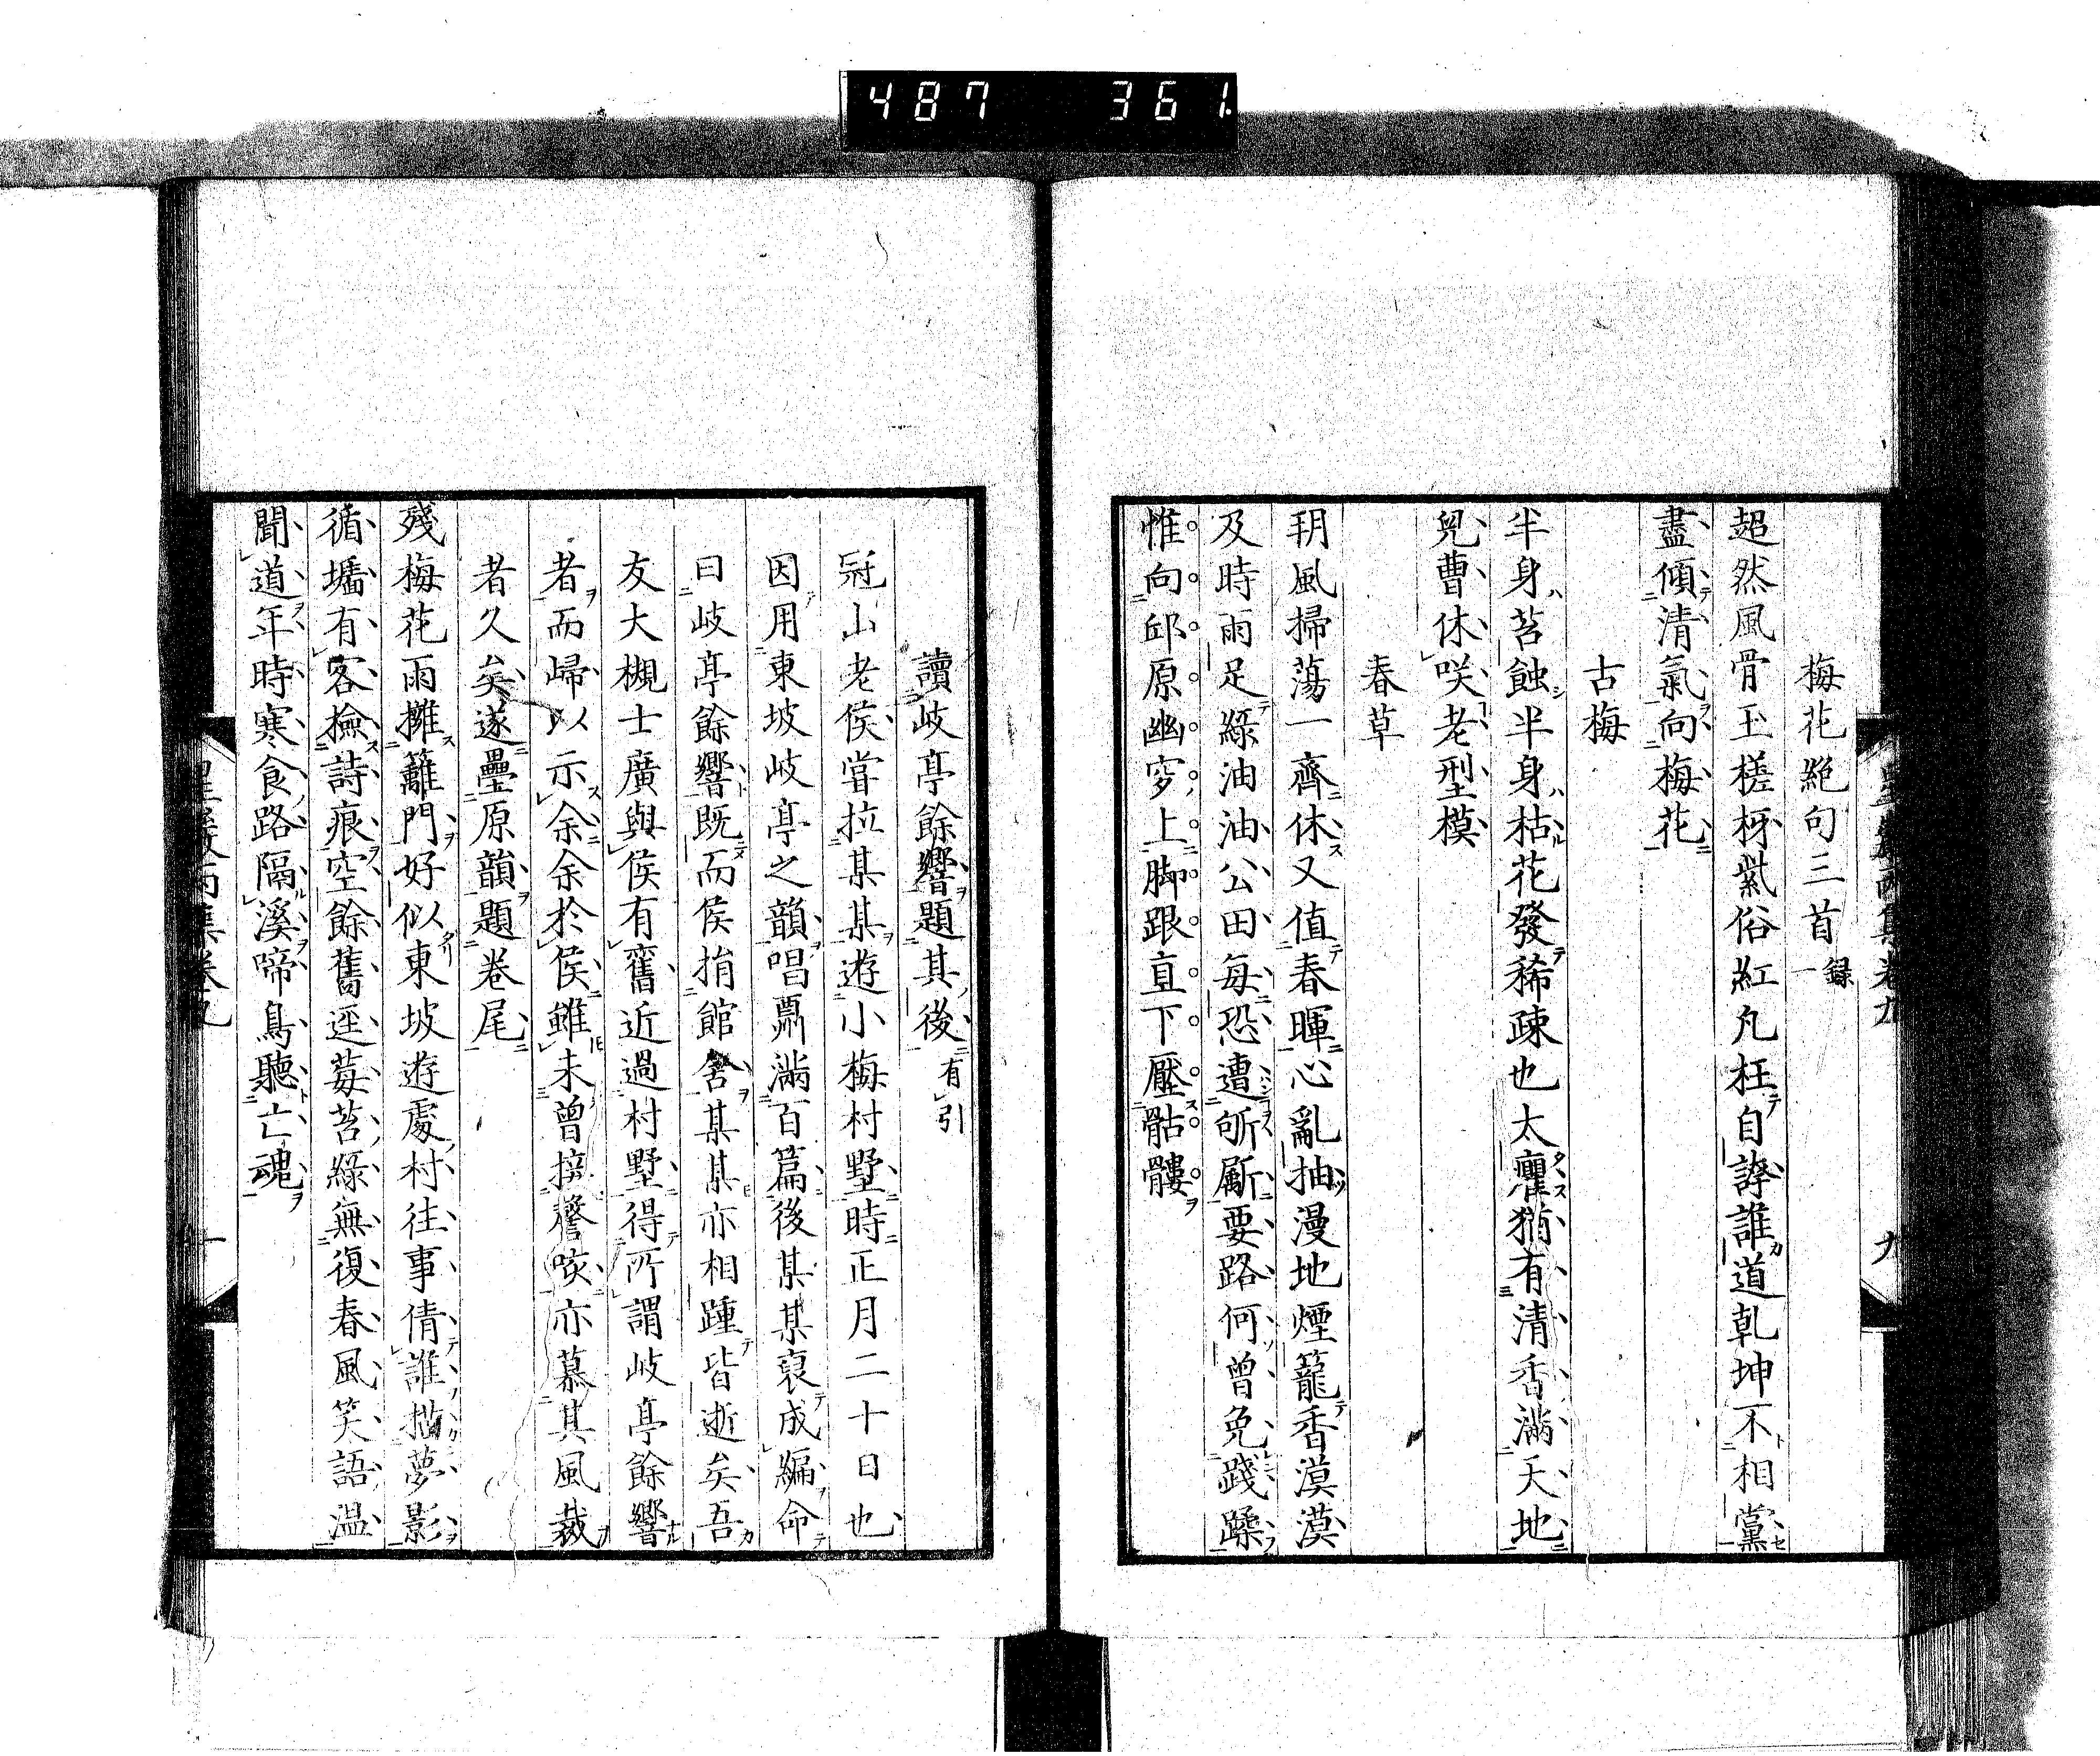 487 361
梅花絶句三首 録一
超然風骨玉槎枒紫俗紅凡枉自誇誰道乾坤不相黨
盡傾清氣向梅花
古梅
半身苔蝕半身枯花發稀疎也太癯猶有清香滿天地
兒曹休咲老型模
春草
朔風掃蕩一齊休又值春暉心亂抽漫地煙籠香漠漠
及時雨足綠油油公田每恐遭斫斸要路何曾免踐蹂
惟向邱原幽穸上脚跟直下壓骷髏
讀岐亭餘響題其後 有引
冠山老侯嘗拉某某遊小梅村墅時正月二十日也
因用東坡岐亭之韻唱酬滿百篇後某某裒成編命
曰岐亭餘響既而侯捐館舍某某亦相踵皆逝矣吾
友大槻士廣與侯有舊近過村墅得所謂岐亭餘響
者而歸以示余余於侯雖未曾接謦咳亦慕其風裁
者久矣遂疊原韻題卷尾
殘梅花雨擁籬門好似東坡遊處村往事倩誰描夢影
循墻有客撿詩痕空餘舊逕莓苔綠無復春風笑語温
聞道年時寒食路隔溪啼鳥聽亡魂